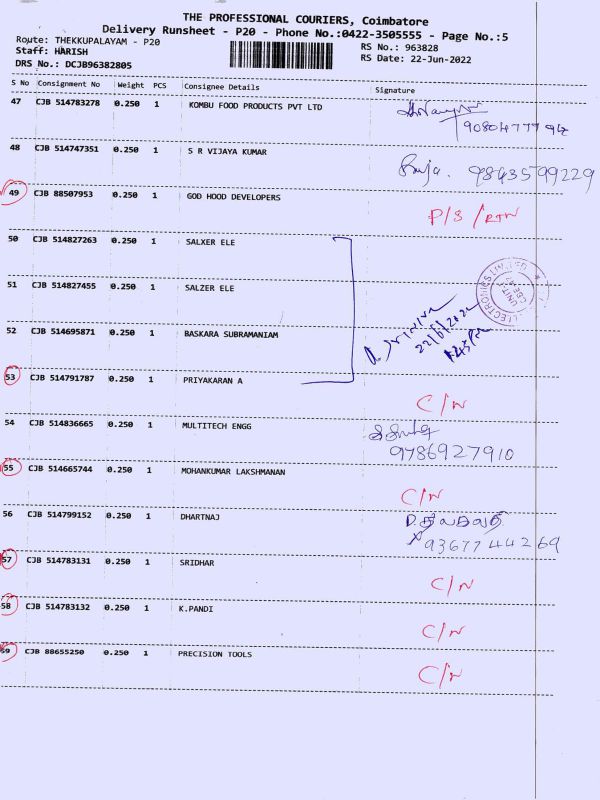 THE PROFESSIONAL COURIERS, Coimbatore
Delivery Runsheet - P20 - Phone No.:0422-3505555 - Page No.:5
Route: THEKKUPALAYAM - P20
RS No.: 963828
Staff: HARISH
RS Date: 22-Jun-2022
DRS No.: DCJB96382805
S No Consignment No Weight PCS Consignee Details Signature
47 CJB 514783278 0.250 1 KOMBU FOOD PRODUCTS PVT LTD
48 CJB 514747351 0.250 1 S R VIJAYA KUMAR 9843599229
49 CJB 88507953 0.250 1 GOD HOOD DEVELOPERS P/S /RTN
50 CJB 514827263 0.250 1 SALXER ELE
51 CJB 514827455 0.250 1 SALZER ELE
22/6/2022
52 CJB 514695871 0.250 1 BASKARA SUBRAMANIAM
53 CJB 514791787 0.250 1 PRIYAKARAN A C/N
54 CJB 514836665 0.250 1 MULTITECH ENGG
9786927910
55 CJB 514665744 0.250 1 MOHANKUMAR LAKSHMANAN C/N
56 CJB 514799152 0.250 1 DHARTNAJ
9367744269
57 CJB 514783131 0.250 1 SRIDHAR C/N
58 CJB 514783132 0.250 1 K.PANDI C/N
59 CJB 88655250 0.250 1 PRECISION TOOLS C/N